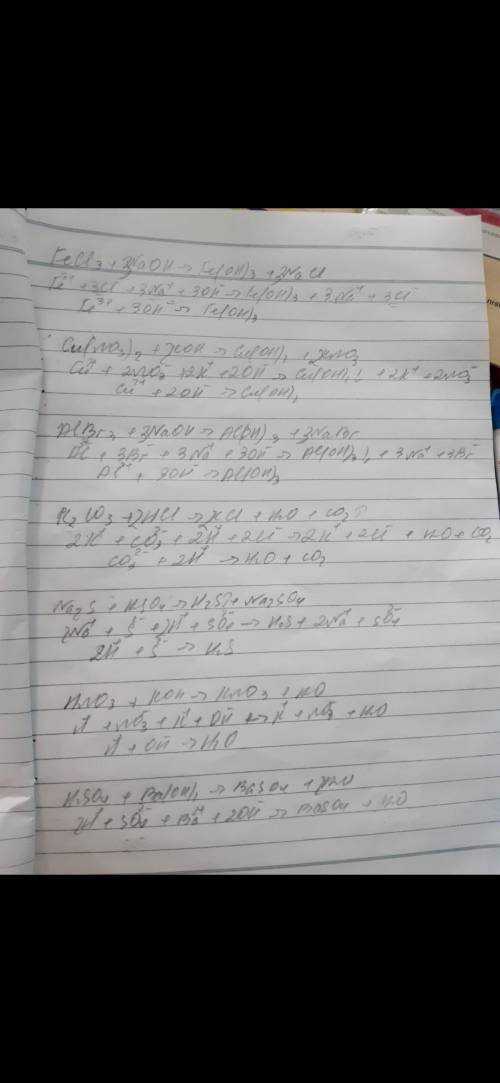 FeCl3 + 3NaOH → Fe(OH)3 + 3NaCl
Fe3+ + 3Cl- + 3Na+ + 3OH- → Fe(OH)3 + 3Na+ + 3Cl-
Fe3+ + 3OH- → Fe(OH)3
Cu(NO3)2 + 2KOH → Cu(OH)2 + 2KNO3
Cu2+ + 2NO3- + 2K+ + 2OH- → Cu(OH)2↓ + 2K+ + 2NO3-
Cu2+ + 2OH- → Cu(OH)2
AlBr3 + 3NaOH → Al(OH)3 + 3NaBr
Al3+ + 3Br- + 3Na+ + 3OH- → Al(OH)3↓ + 3Na+ + 3Br-
Al3+ + 3OH- → Al(OH)3
K2CO3 + 2HCl → 2KCl + H2O + CO2↑
2K+ + CO32- + 2H+ + 2Cl- → 2K+ + 2Cl- + H2O + CO2
CO32- + 2H+ → H2O + CO2
Na2S + H2SO4 → H2S↑ + Na2SO4
2Na+ + S2- + 2H+ + SO42- → H2S + 2Na+ + SO42-
2H+ + S2- → H2S
HNO3 + KOH → KNO3 + H2O
H+ + NO3- + K+ + OH- → K+ + NO3- + H2O
H+ + OH- → H2O
H2SO4 + Ba(OH)2 → BaSO4 + 2H2O
2H+ + SO42- + Ba2+ + 2OH- → BaSO4 + H2O